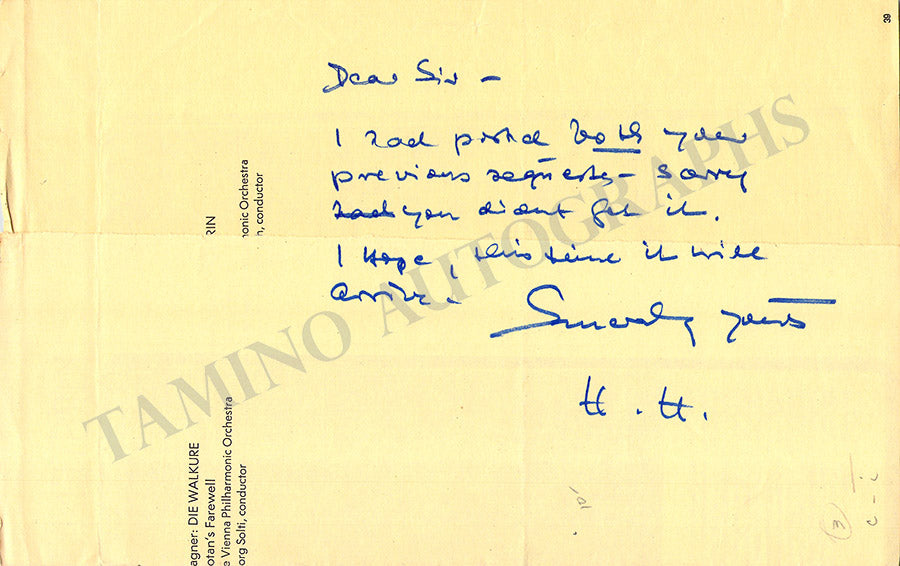 39
Dear Sir –
I had posted both your
previous requests – sorry
had you didnt get it.
I Hope, this time it will
arrive!
Sincerely yours
H. H.
RIN
monic Orchestra
, conductor
agner: DIE WALKURE
otan's Farewell
e Vienna Philharmonic Orchestra
org Solti, conductor
TAMINO AUTOGRAPHS
10'
(3)
c – i